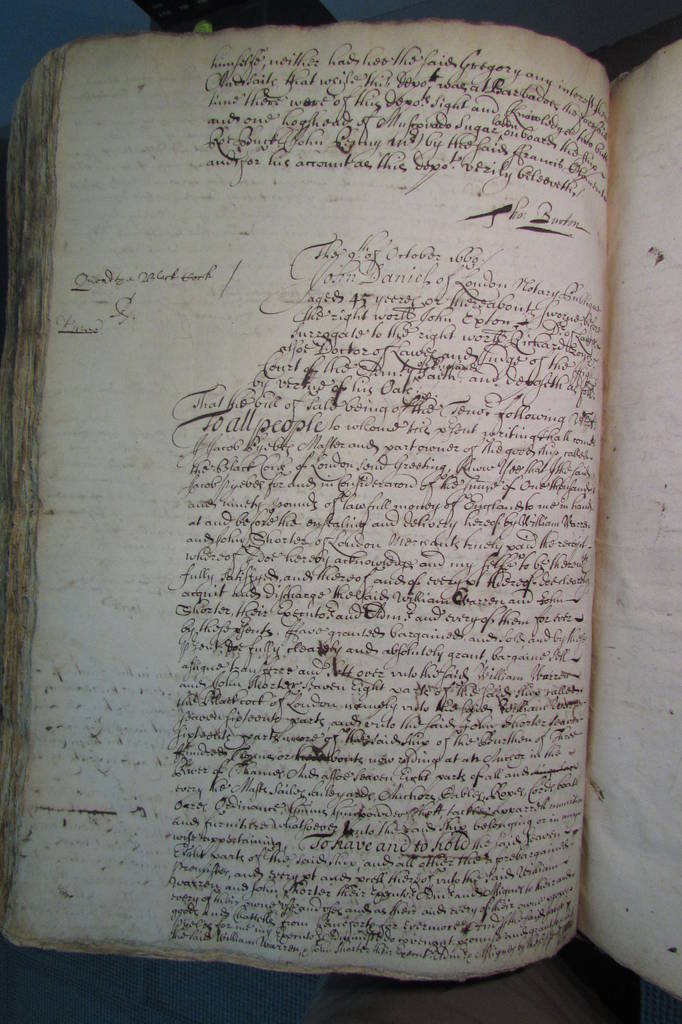 himselfe, neither had hee the said Gregory any interest
time there were of this depots sight and knowledge
and one hogshead of Muscovado Sugar, on board the
by the said Francis
and for his account as this depot verily beleeveth./
Tho: Burton
The 9th of October 1663/
John Daniel of London Notary Publique
aged 45 yeeres or thereabouts sworne before
the right worll John Exton Dr of Lawes
Surrogate to the right worll
Doctor of Lawes and Judge of the
Court of the Admlty and deposeth as
by vertue of his Oath
Black Cock
That the bill of Sale being of the Tenor following
To all people to whome this psent writing shall come
I Jacob Master and part owner of the good ship called
the Black Cock of London send Greeting, Know Yee that I the said
Jacob for and in Consideracon of the summe of One thousand
and ninety pounds of lawfull money of England to me in hand
at and before the ensealing and delivery hereof by William Warren
and John Shorter of London Merchants truely paid the receipt
whereof I doe hereby acknowledge and my selfe to be therewth
fully satisfyed, and thereof and of every pt thereof doe cleerely
acquit and discharge the said William Warren and John
Shorter, their Executors and Admrs and every of them for ever
by these psents. Have granted bargained and sold and by these
psents doe fully clearely and absolutely grant, bargaine sell
assigne transferre and sett over unto the said William Warren
and John Shorter, seaven Eight partes of the said ship called
the Black Cock of London, namely unto the said William Warren
seaven sixteenth parts, and unto the said John Shorter seaven
sixteenth parts more of the said ship of the burthen of Three
hundred Tonnes or thereabouts now riding at an Anchor in the
River of Thames And alsoe seaven Eight parts of all and
every the Masts Sailes saileyards, Anchors, Cables, Ropes, Cords, boate
Oares Ordinance, Gunnes, Gunpowder shott tackle apparrell munition
and furniture whatsoever unto the said ship belonging or in any
wise appertaining, To have and to hold the said seaven
Eight parts of the said ship, and all other the
premisses, and every pt and pcell thereof unto the said William
Warren and John Shorter their Executors Admrs and Assignes to their and
every of their owne use and uses and as their and every of their owne proper
goods and Chattells from henceforth for evermore And I the said Jacob
for me my Executors Admrs doe covenant promise and grant to
the said William Warren & John Shorter their